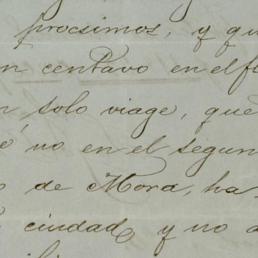 procsimos, y qu
n centavo en el f
n solo viage, que
é no en el segun
o de Mora, ha
ciudad y no a